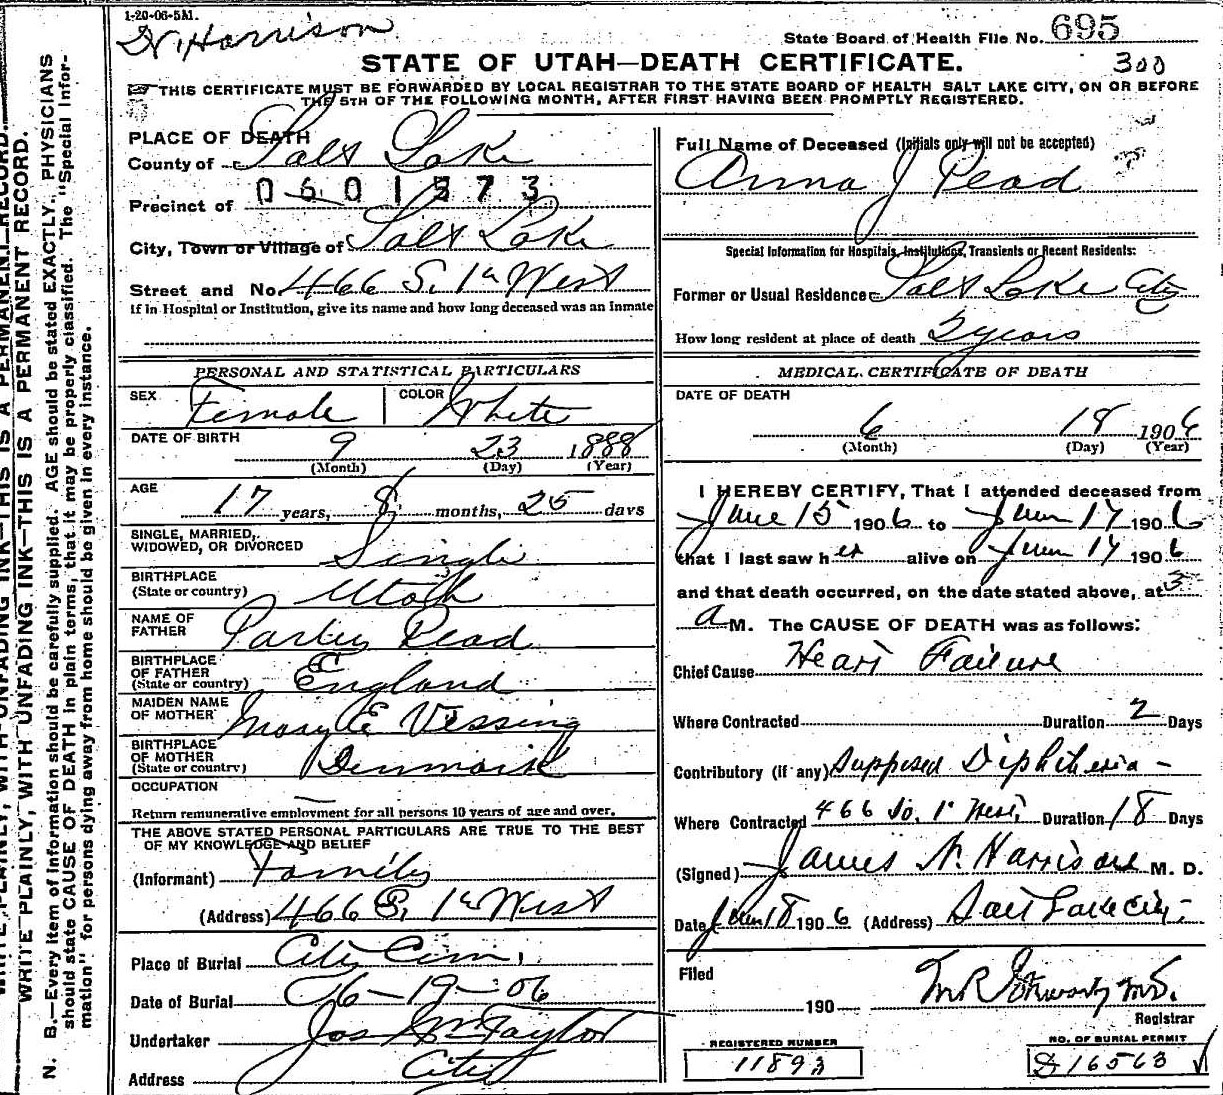 1-20-06-5M.
Dr. Harrison
State Board of Health File No. 695
300
STATE OF UTAH—DEATH CERTIFICATE.
THIS CERTIFICATE MUST BE FORWARDED BY LOCAL REGISTRAR TO THE STATE BOARD OF HEALTH SALT LAKE CITY, ON OR BEFORE
THE 5TH OF THE FOLLOWING MONTH, AFTER FIRST HAVING BEEN PROMPTLY REGISTERED.
PLACE OF DEATH
County of Salt Lake
0601573
Precinct of
City, Town or Village of Salt Lake
Street and No. 466 S. 1st West
If in Hospital or Institution, give its name and how long deceased was an Inmate
PERSONAL AND STATISTICAL PARTICULARS
SEX Female COLOR White
DATE OF BIRTH 9 23 1888
(Month) (Day) (Year)
AGE
17 years, 8 months, 25 days
SINGLE, MARRIED,
WIDOWED, OR DIVORCED Single
BIRTHPLACE
(State or country) Utah
NAME OF
FATHER Parley Pead
BIRTHPLACE
OF FATHER
(State or country) England
MAIDEN NAME
OF MOTHER Mary E Vissing
BIRTHPLACE
OF MOTHER
(State or country) Denmark
OCCUPATION —
Return remunerative employment for all persons 10 years of age and over.
THE ABOVE STATED PERSONAL PARTICULARS ARE TRUE TO THE BEST
OF MY KNOWLEDGE AND BELIEF
(Informant) Family
(Address) 466 S. 1st West
Place of Burial City Cem.
Date of Burial 6-19-06
Undertaker Jos Wm Taylor
Address City
Full Name of Deceased (Initials only will not be accepted)
Anna J Pead
Special Information for Hospitals, Institutions, Transients or Recent Residents:
Former or Usual Residence Salt Lake City
How long resident at place of death 2 years
MEDICAL CERTIFICATE OF DEATH
DATE OF DEATH
6 18 1906
(Month) (Day) (Year)
I HEREBY CERTIFY, That I attended deceased from
June 15 1906 to June 17 1906
that I last saw her alive on June 17 1906
and that death occurred, on the date stated above, at 3
a M. The CAUSE OF DEATH was as follows:
Chief Cause Heart Failure
Where Contracted Duration 2 Days
Contributory (if any) Supposed Diphtheria -
Where Contracted 466 So. 1st West, Duration 18 Days
(Signed) James N. Harrison M. D.
Date June 18 1906 (Address) Salt Lake City -
Filed
190 M.D.
Registrar
REGISTERED NUMBER
11893
NO. OF BURIAL PERMIT
D 16563
WRITE PLAINLY, WITH UNFADING INK—THIS IS A PERMANENT RECORD.
WRITE PLAINLY, WITH UNFADING INK—THIS IS A PERMANENT RECORD.
N. B.—Every item of information should be carefully supplied. AGE should be stated EXACTLY. PHYSICIANS
should state CAUSE OF DEATH in plain terms, that it may be properly classified. The "Special Infor-
mation" for persons dying away from home should be given in every instance.